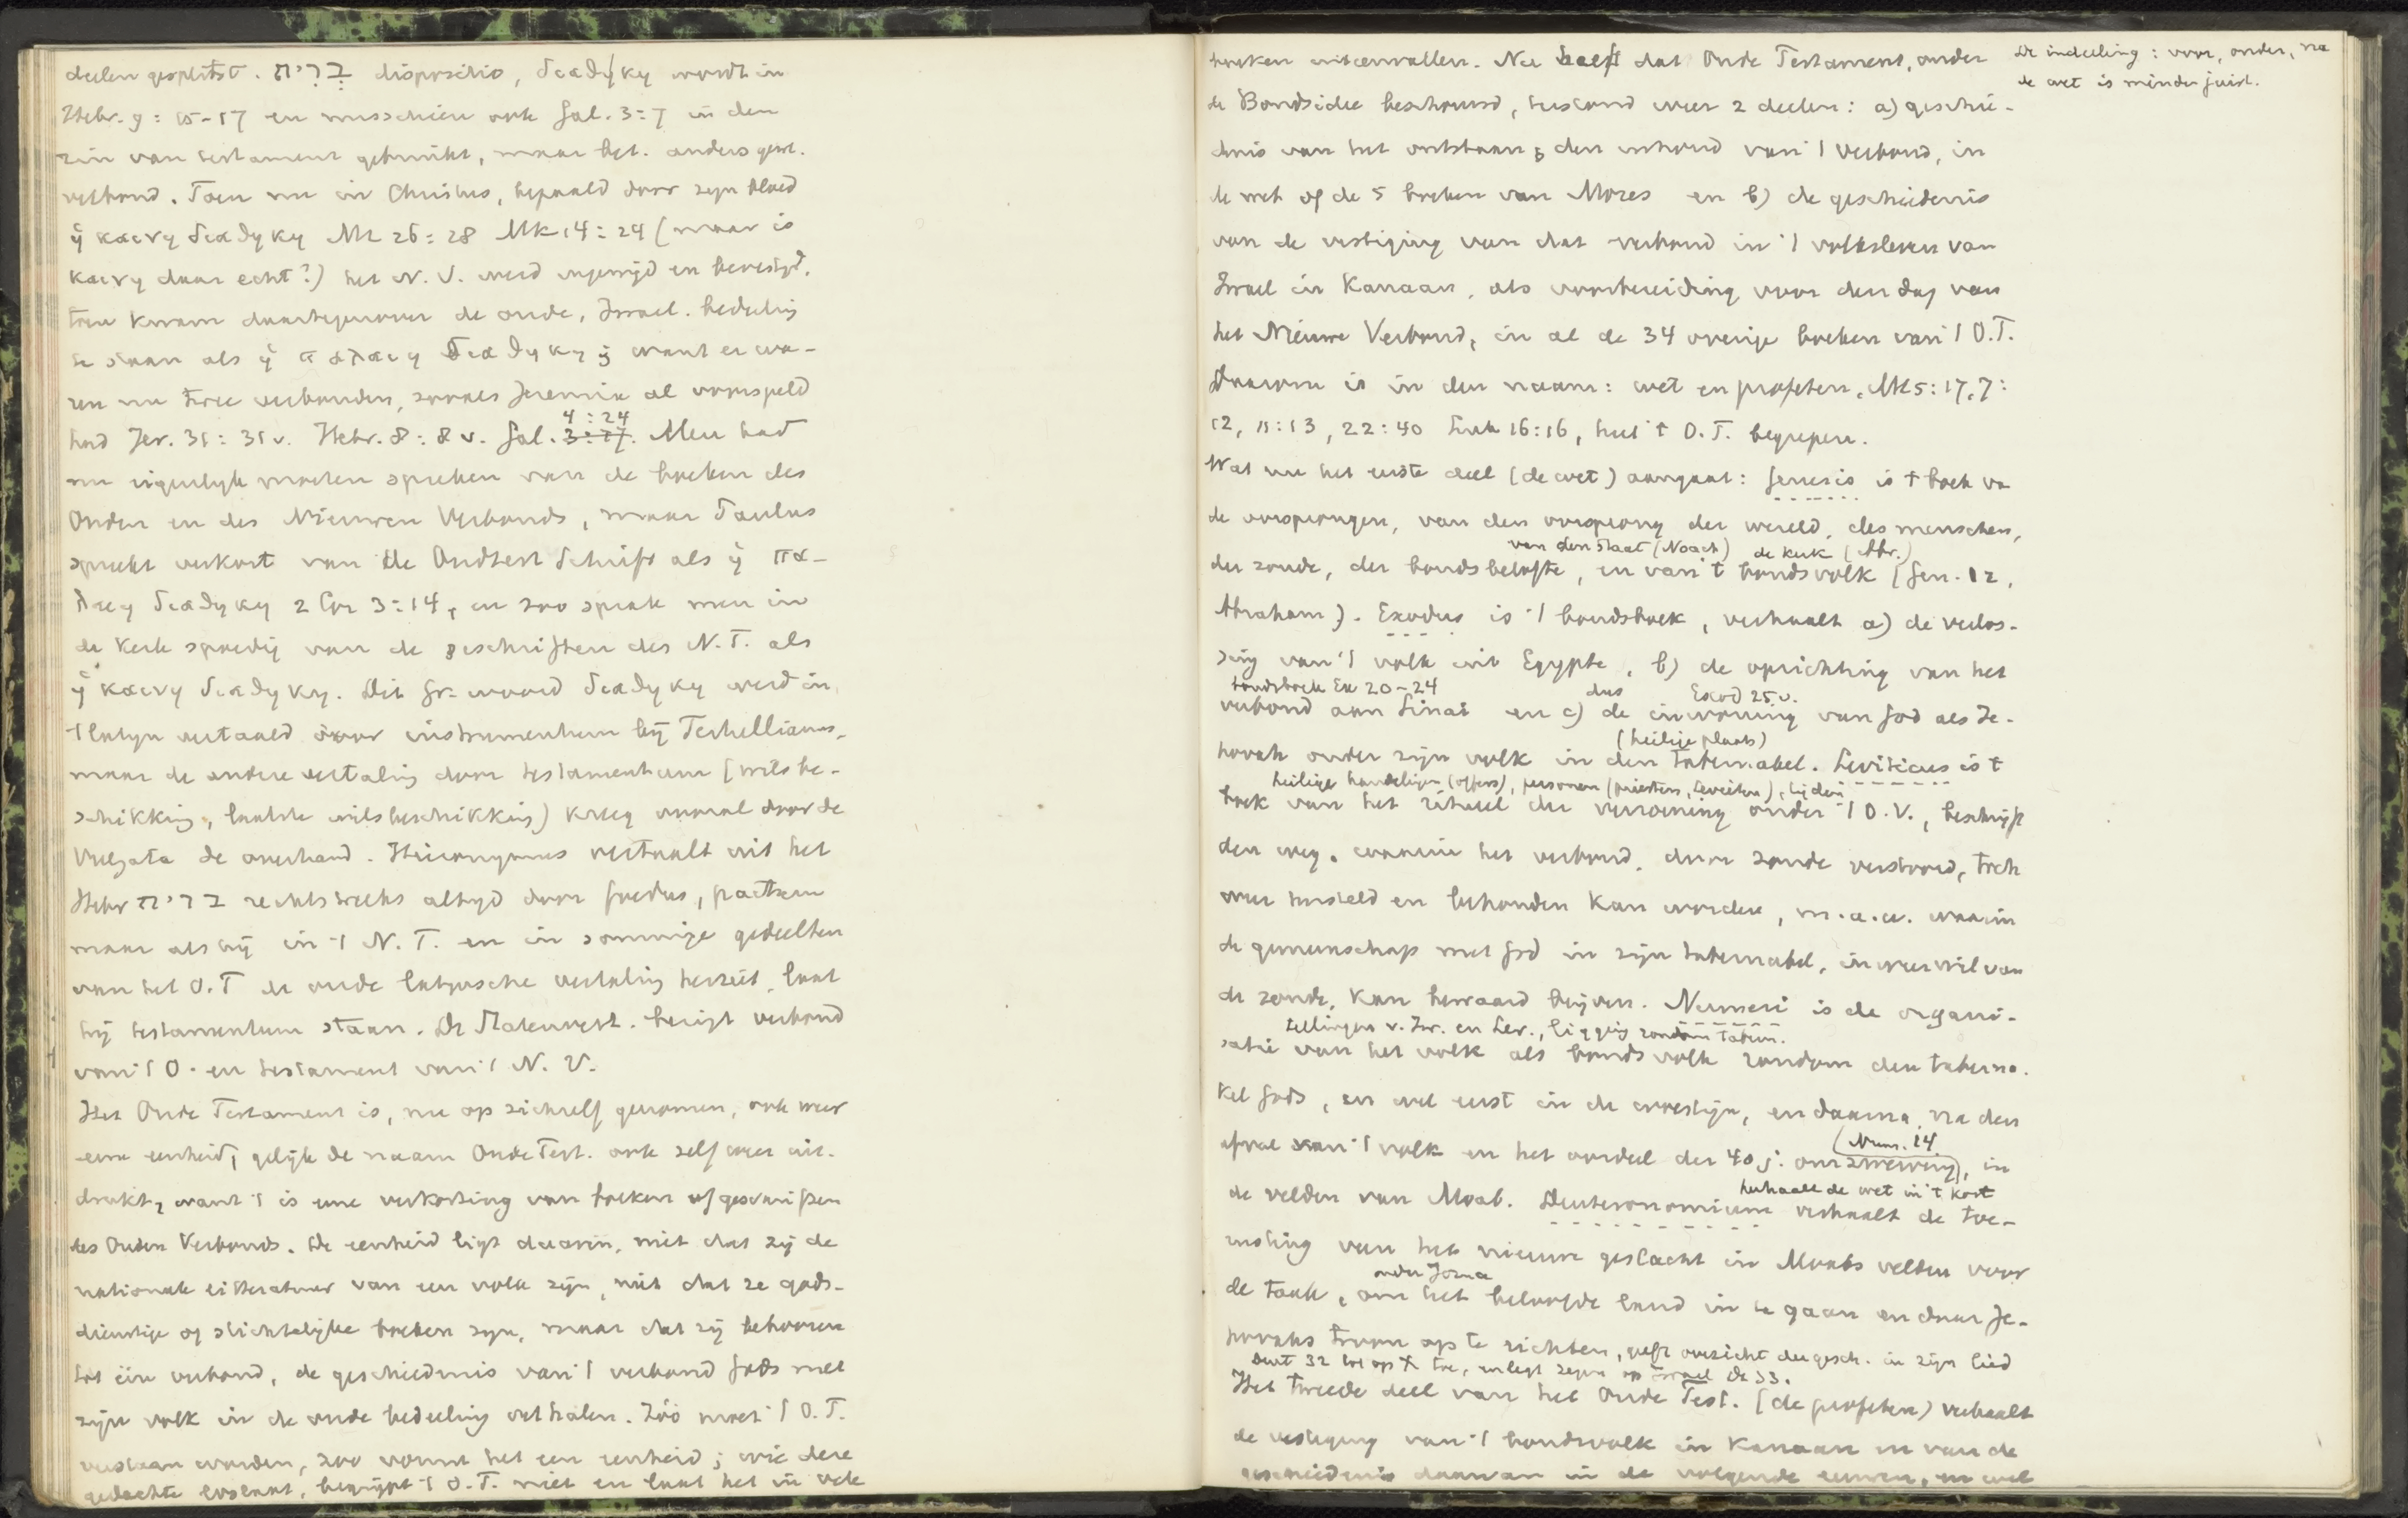 deelen gesplitst. בְּרִית dispositio, διαθηκη wordt in
Hebr. 9:15-17 en misschien ook Gal. 3:7 in den
zin van testament gebruikt, maar bet. anders gew.
verbond. Toen nu in Christus, bepaald door zijn bloed
ἡ καινη διαθηκη Mt 26:28 Mk 14:24 (maar is
καινη daar echt?) het N.V. werd ingewijd en bevestigd,
toen kwam daartegenover de oude, Israel. bedeeling
te staan als ἡ παλαιη διαθηκη; want er wa-
ren nu twee verbonden, zooals Jeremia al voorspeld
had Jer. 31:31 v. Hebr. 8:8 v. Gal. 4:24. Men had
nu eigenlijk moeten spreken van de boeken des
Ouden en des Nieuwen Verbonds, maar Paulus
spreekt verkort van de Oudtest Schrift als ἡ πα-
λαιη διαθηκη 2 Cor 3:14, en zoo sprak men in
de Kerk spoedig van de geschriften des N.T. als
ἡ καινη διαθηκη. Dit Gr. woord διαθηκη werd in
't latijn vertaald door instrumentum bij Tertullianus,
maar de andere vertaling door testamentum (wilsbe-
schikking, laatste wilsbeschikking) kreeg vooral door de
Vulgata de overhand. Hieronymus vertaalt uit het
Hebr ברית rechtstreeks altijd door foedus, pactum
maar als hij in 't N.T. en in sommige gedeelten
van het O.T de oude latijnsche vertaling herziet, laat
hij testamentum staan. De Statenvert. bezigt verbond
van 't O. en testament van 't N.V.
Het Oude Testament is, nu op zichzelf genomen, ook weer
eene eenheid, gelijk de naam Oude Test. ook zelf weer uit-
drukt, want 't is eene verkorting van boeken of geschriften
des Ouden Verbonds. De eenheid ligt daarin, niet dat zij de
nationale litteratuur van een volk zijn, niet dat ze gods-
dienstige of stichtelijke boeken zijn, maar dat zij behooren
tot één verbond, de geschiedenis van 't verbond Gods met
zijn volk in de oude bedeeling verhalen. Zóó moet 't O.T.
verstaan worden, zoo vormt het een eenheid; wie deze
gedachte loslaat, begrijpt 't O.T. niet en laat het in vele
boeken uiteenvallen. Nu heeft dat Oude Testament, onder
de Bondsidee beschouwd, bestand weer 2 deelen: a) geschie-
denis van het ontstaan en den inhoud van 't verbond, in
de wet of de 5 boeken van Mozes en b) de geschiedenis
van de vestiging van dat verbond in 't volksleven van
Israel in Kanaan, als voorbereiding voor den dag van
het Nieuwe Verbond, in al de 34 overige boeken van 't O.T.
Daarom is in den naam: wet en profeten, Mt 5:17, 7:
12, 11:13, 22:40 Luk 16:16, heel 't O.T. begrepen.
Wat nu het eerste deel (de wet) aangaat: Genesis is 't boek va
de oorsprongen, van den oorsprong der wereld, des menschen,
van den Staat (Noach) de kerk (Abr.)
der zonde, der bondsbelofte, en van 't bondsvolk (Gen. 12,
Abraham). Exodus is 't bondsboek, verhaalt a) de verlos-
sing van 't volk uit Egypte, b) de oprichting van het
bondsboek Ex 20-24 dus Exod 25 v.
verbond aan Sinai en c) de inwoning van God als Je-
(heilige plaats)
hovah onder zijn volk in den tabernakel. Leviticus is 't
heilige handelingen (offers), personen (priesters, Levieten), tijden
boek van het ritueel der verzoening onder 't O.V., beschrijft
den weg, waarin het verbond, door zonde verstoord, toch
weer hersteld en behouden kan worden, m.a.w. waarin
de gemeenschap met God in zijn tabernakel, in weerwil van
de zonde, kan bewaard blijven. Numeri is de organi-
tellingen v. Isr. en Lev., ligging rondom tabern.
satie van het volk als bondsvolk rondom den taberna-
kel Gods, en wel eerst in de woestijn, en daarna, na den
(Num. 14
afval van 't volk en het oordeel der 40 j. omzwerving), in
herhaalt de wet in 't kort
de velden van Moab. Deuteronomium verhaalt de toe-
rusting van het nieuwe geslacht in Moabs velden voor
onder Jozua
de taak, om het beloofde land in te gaan en daar Je-
hovahs troon op te richten, geeft overzicht der gesch. in zijn lied
Deut 32 tot op X toe, en legt zegen op Israel Dt 33.
Het tweede deel van het Oude Test. (de profeten) verhaalt
de vestiging van 't bondsvolk in Kanaan en van de
geschiedenis daarvan in de volgende eeuwen, en wel
De indeeling: voor, onder, na
de wet is minder juist.